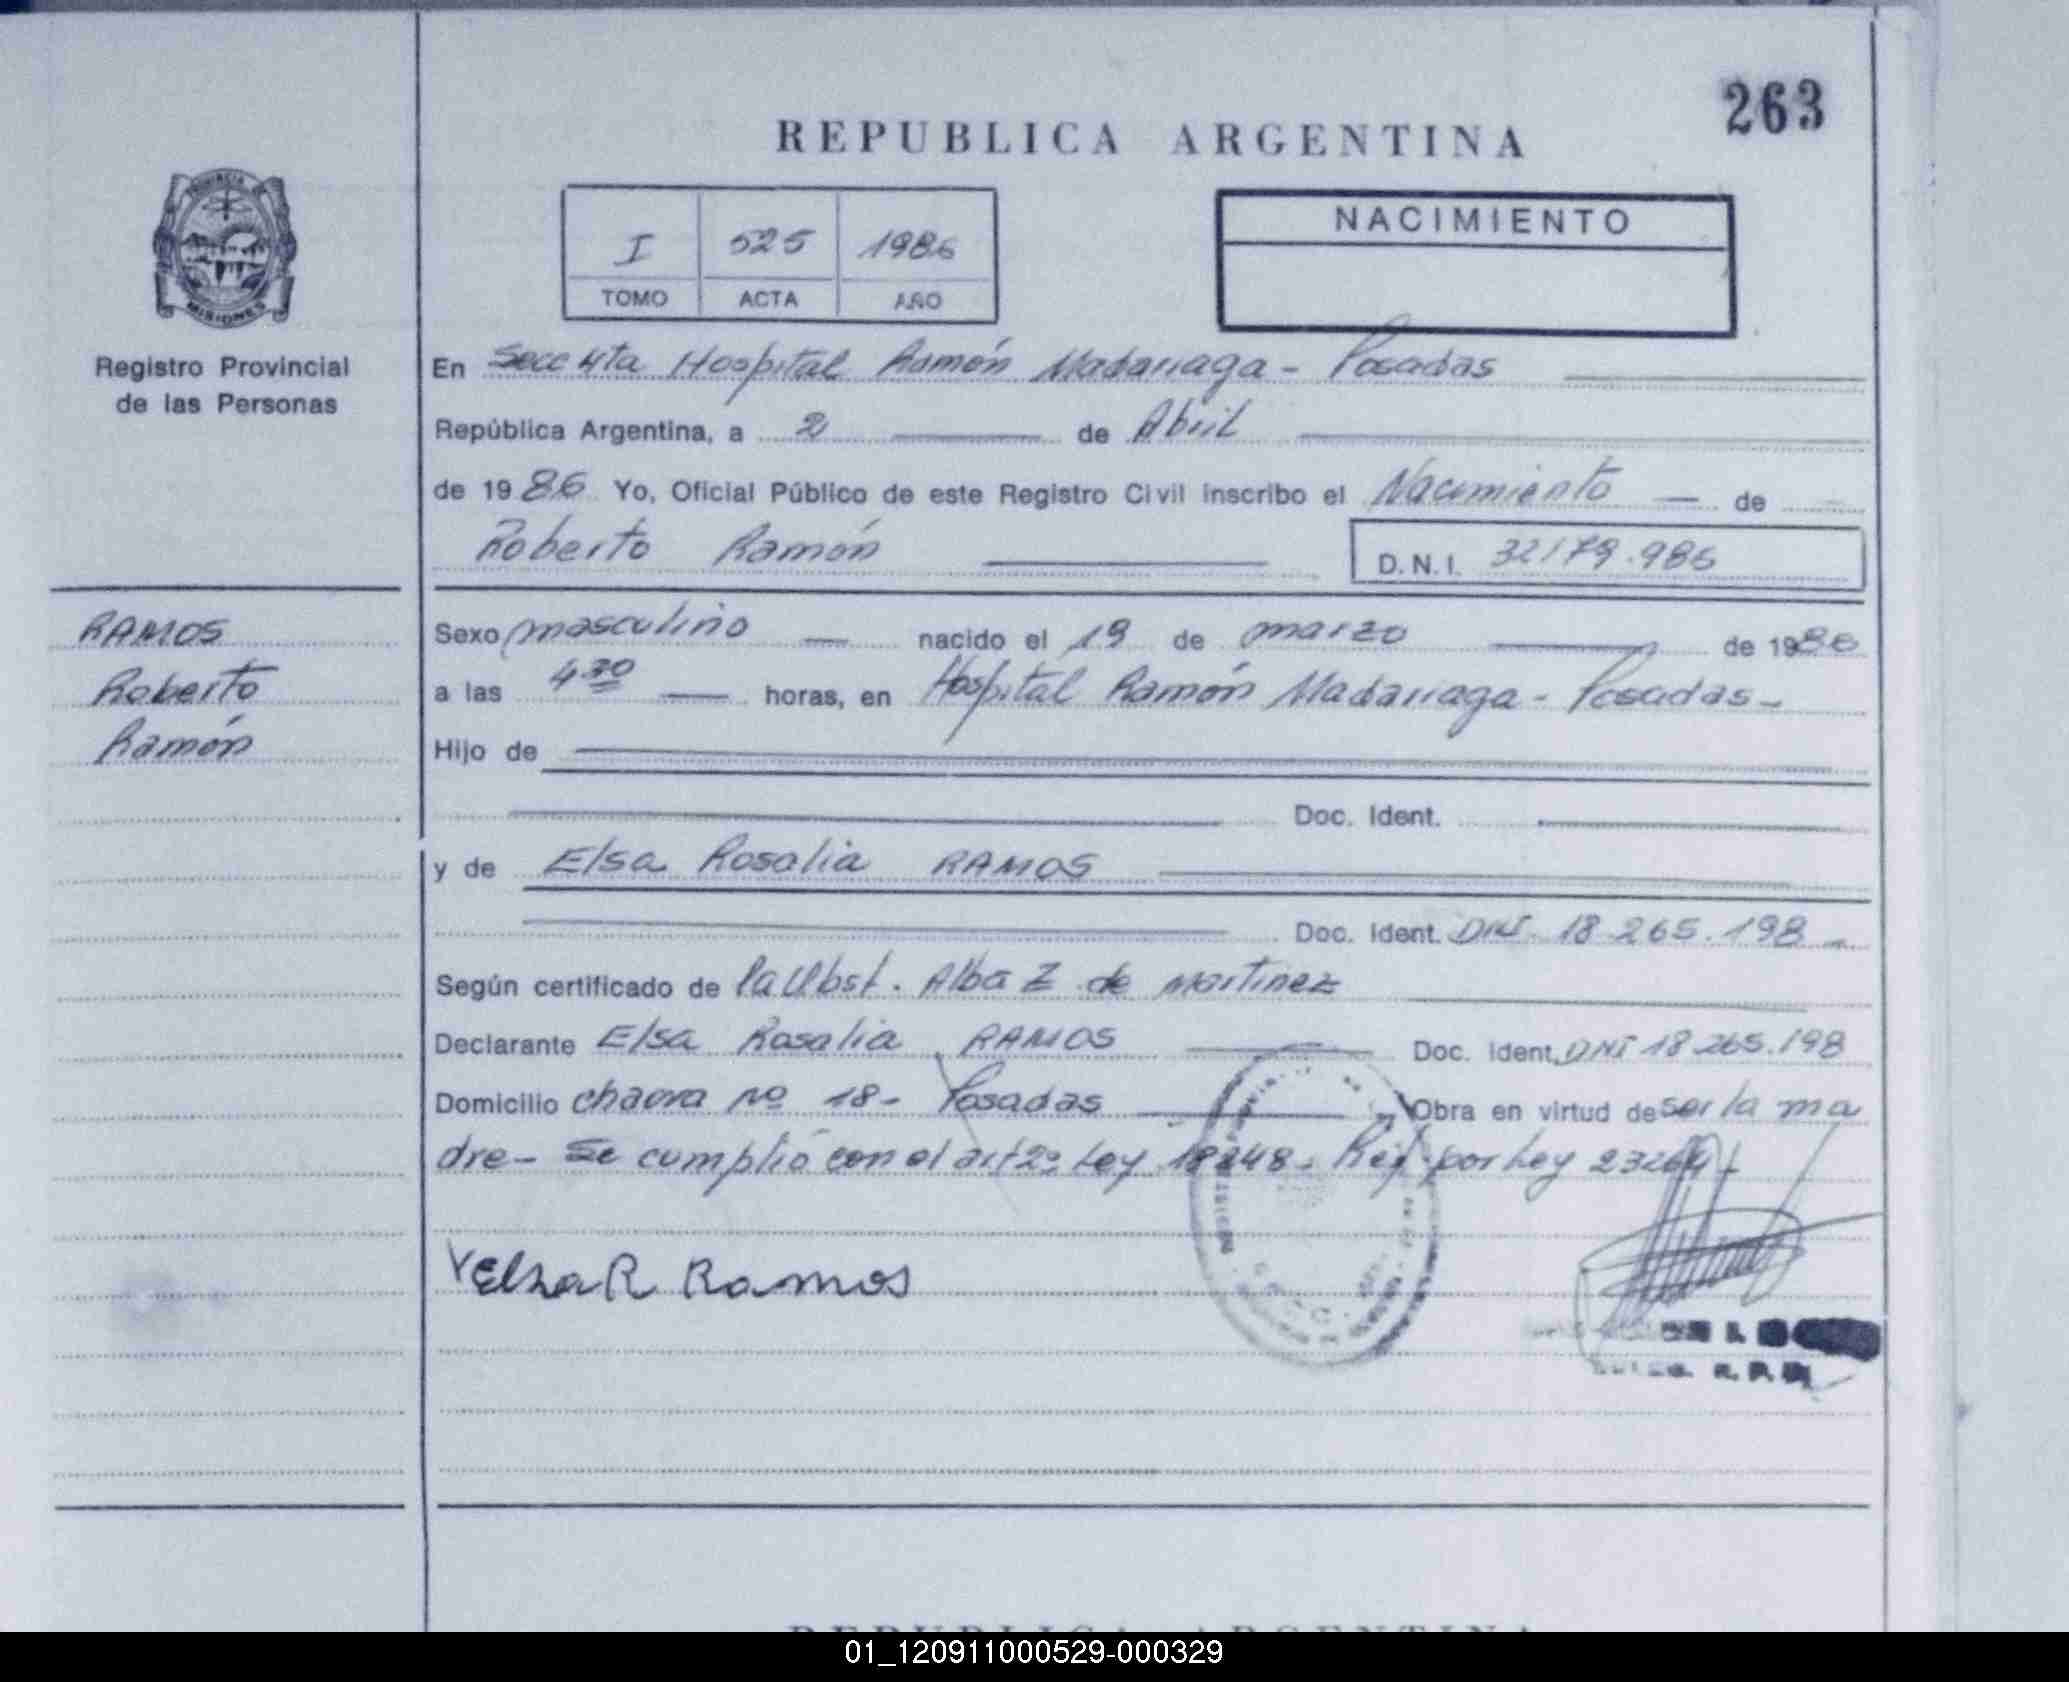 263
REPUBLICA ARGENTINA
PROVINCIA DE
MISIONES
Registro Provincial
de las Personas
I 525 1986
TOMO ACTA AÑO
NACIMIENTO
En Secc 4ta Hospital Ramón Madariaga - Posadas
República Argentina, a 2 de Abril
de 1986 Yo, Oficial Público de este Registro Civil inscribo el Nacimiento de
Roberto Ramón D.N.I. 32179.986
RAMOS
Roberto
Ramón
Sexo masculino nacido el 19 de marzo de 1986
a las 4 30 horas, en Hospital Ramón Madariaga - Posadas -
Hijo de
Doc. Ident.
y de Elsa Rosalia RAMOS
Doc. Ident. DNI 18 265.198
Según certificado de la Obst. Alba Z de Martinez
Declarante Elsa Rosalia RAMOS Doc. Ident. DNI 18 265.198
Domicilio chacra nº 18 - Posadas Obra en virtud de ser la ma
dre - Se cumplió con el art 2º Ley 18248. Ref. por Ley 23264 -
Elsa R Ramos
REPUBLICA ARGENTINA
01_120911000529-000329